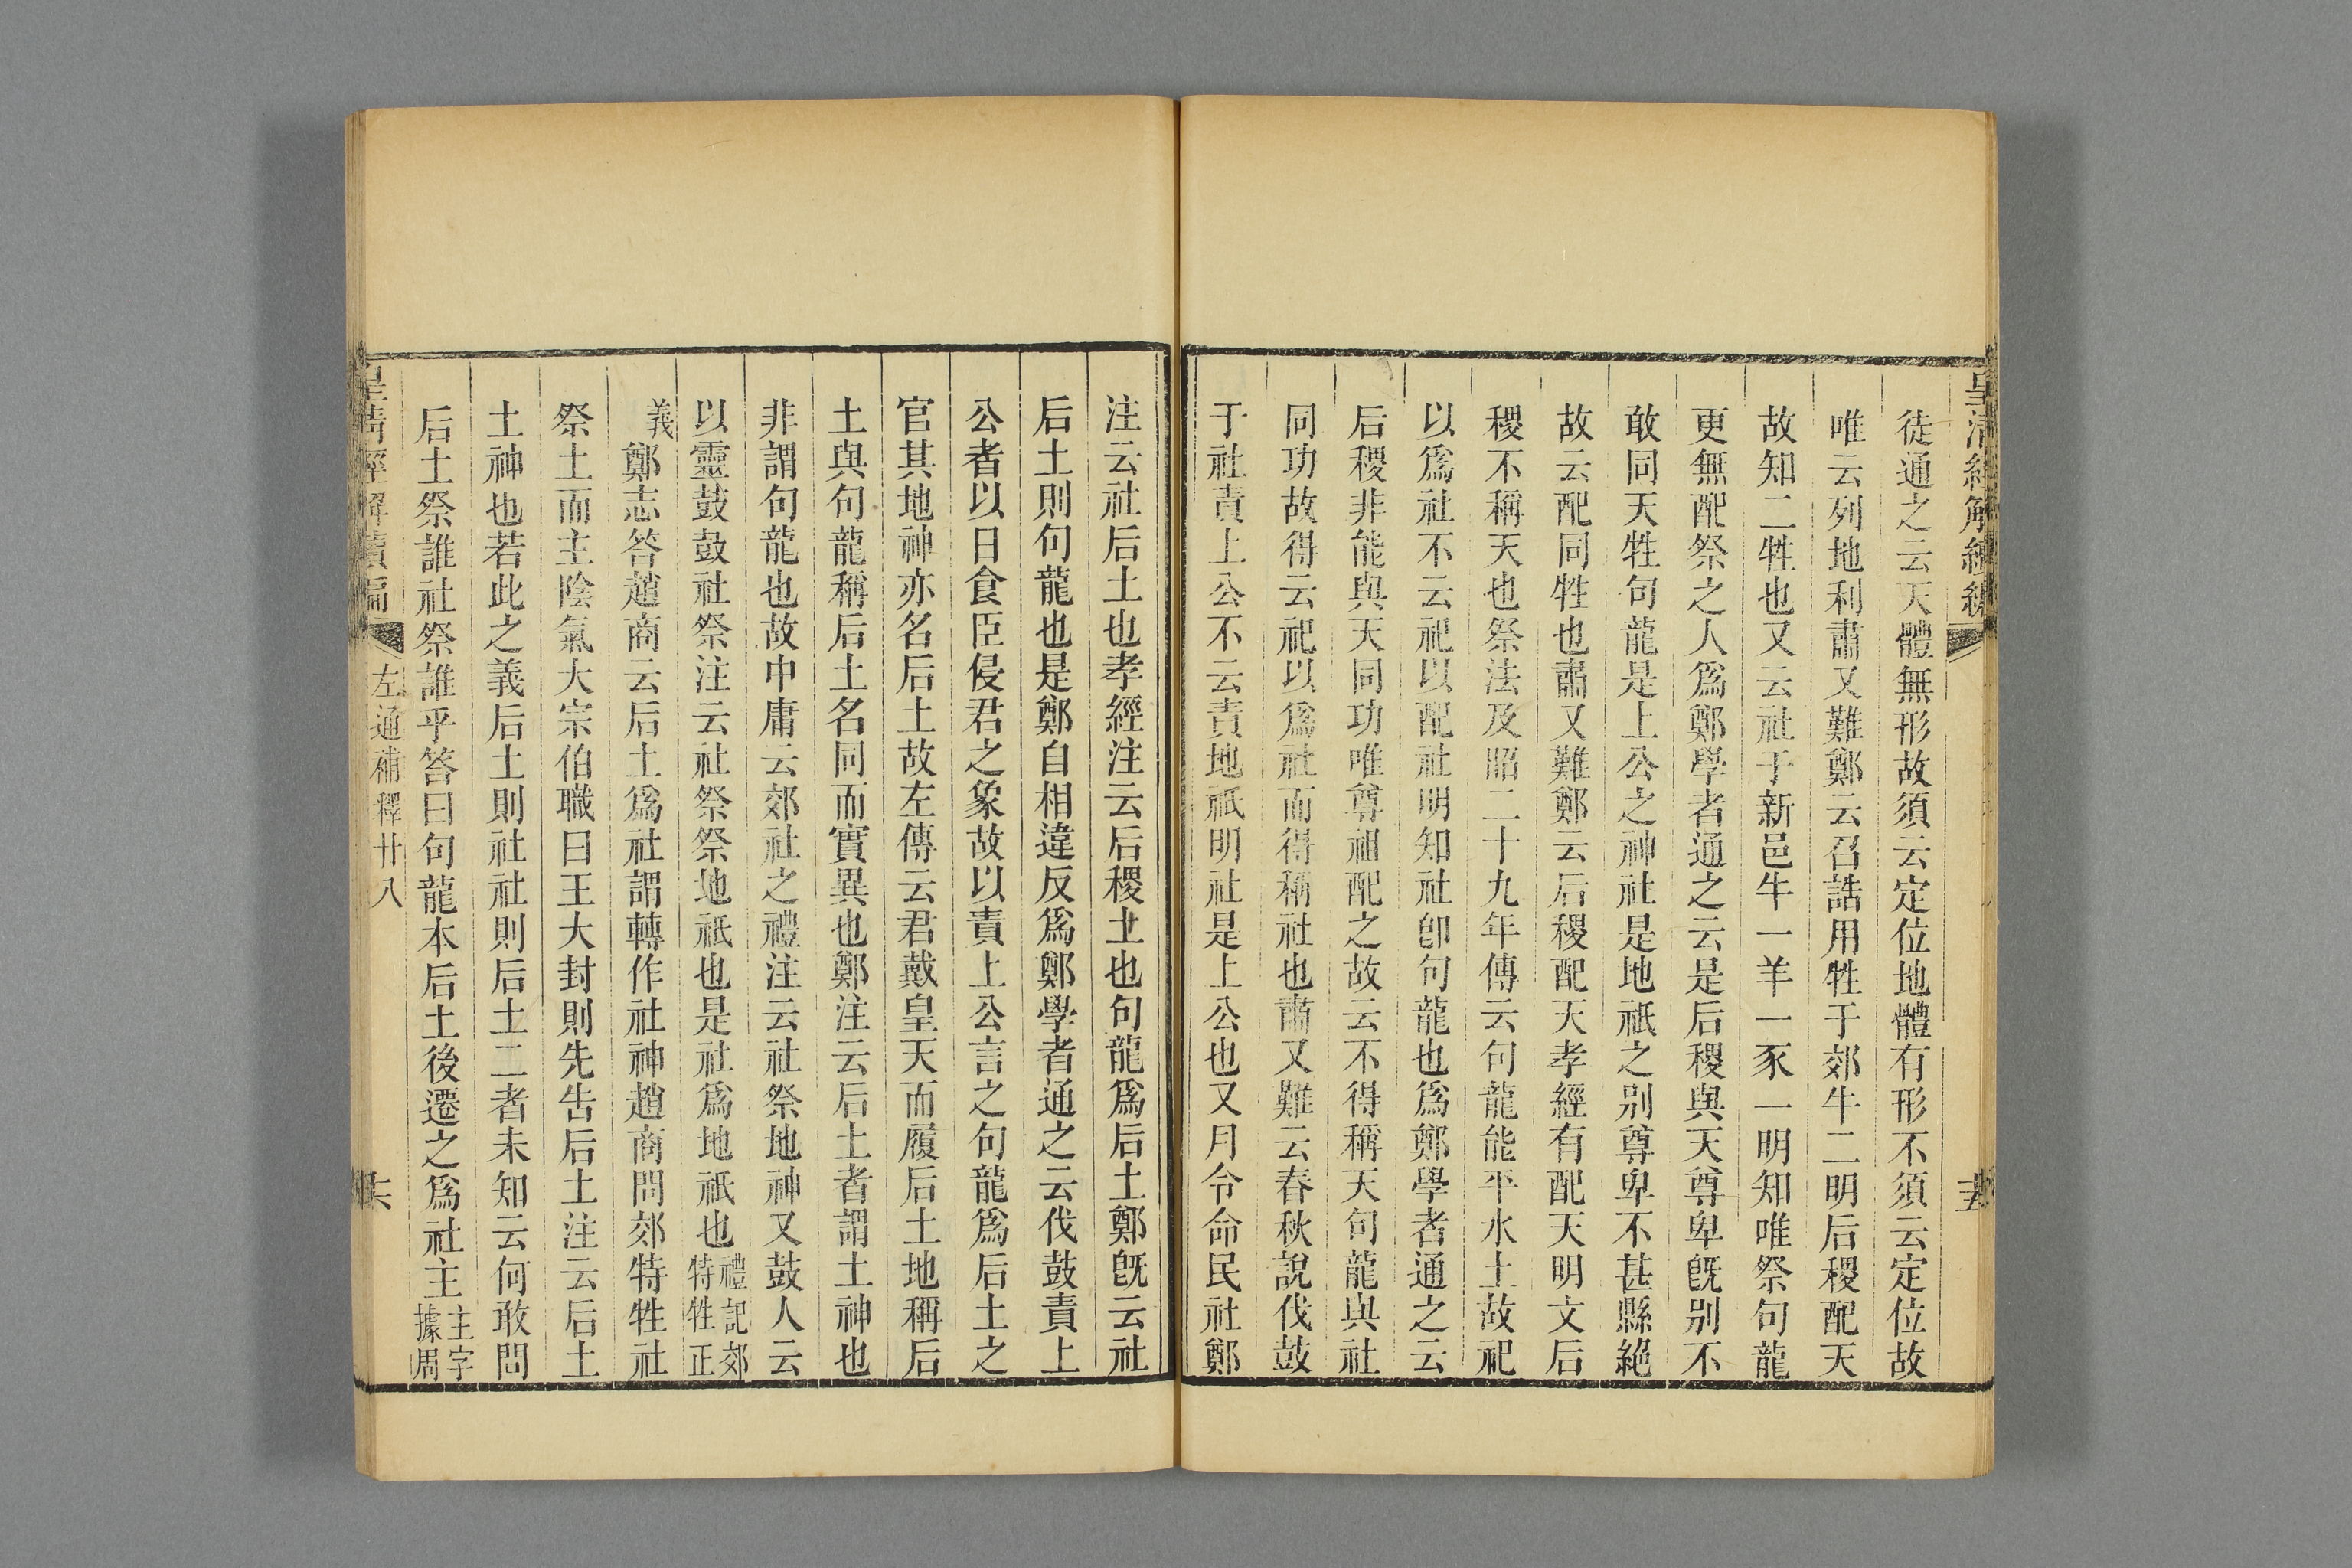 徒通之云天體無形故須云定位地體有形不須云定位故
唯云列地利肅又難鄭云召誥用牲于郊牛二明后稷配天
故知二牲也又云社于新邑牛一羊一豕一明知唯祭句龍
更無配祭之人爲鄭學者通之云是后稷與天尊卑旣别不
敢同天牲句龍是上公之神社是地祇之别尊卑不甚縣絶
故云配同牲也肅又難鄭云后稷配天孝經有配天明文后
稷不稱天也祭法及昭二十九年傳云句龍能平水土故祀
以爲社不云祀以配社明知社卽句龍也爲鄭學者通之云
后稷非能與天同功唯尊祖配之故云不得稱天句龍與社
同功故得云祀以爲社而得稱社也肅又難云春秋說伐鼓
于社責上公不云責地祇明社是上公也又月令命民社鄭
注云社后土也孝經注云后稷土也句龍爲后土鄭旣云社
后土則句龍也是鄭自相違反爲鄭學者通之云伐鼓責上
公者以日食臣侵君之象故以責上公言之句龍爲后土之
官其地神亦名后土故左傳云君戴皇天而履后土地稱后
土與句龍稱后土名同而實異也鄭注云后土者謂土神也
非謂句龍也故中庸云郊社之禮注云社祭地神又鼓人云
以靈鼓鼓社祭注云社祭祭地祇也是社爲地祇也禮記郊特牲正
義鄭志答趙商云后土爲社謂轉作社神趙商問郊特牲社
祭土而主陰氣大宗伯職曰王大封則先告后土注云后土
土神也若此之義后土則社社則后土二者未知云何敢問
后土祭誰社祭誰乎答曰句龍本后土後遷之爲社主主字據周
皇淸經解續編 左通補釋廿八 六